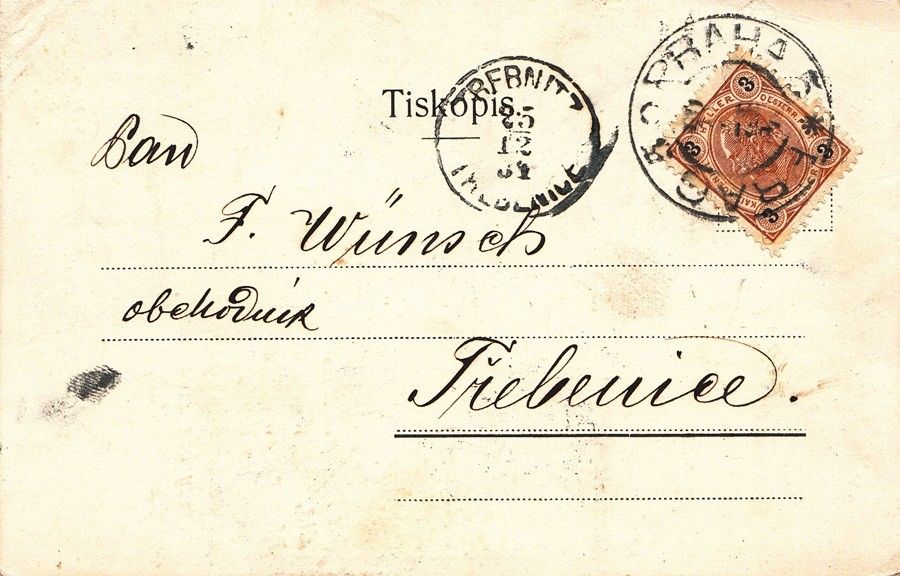 Tiskopis.
TREBNITZ
25
12
TŘEBENICE
PRAHA
3 HELLER
3
3
3
Pan
F. Wünsch
obchodník
Třebenice.